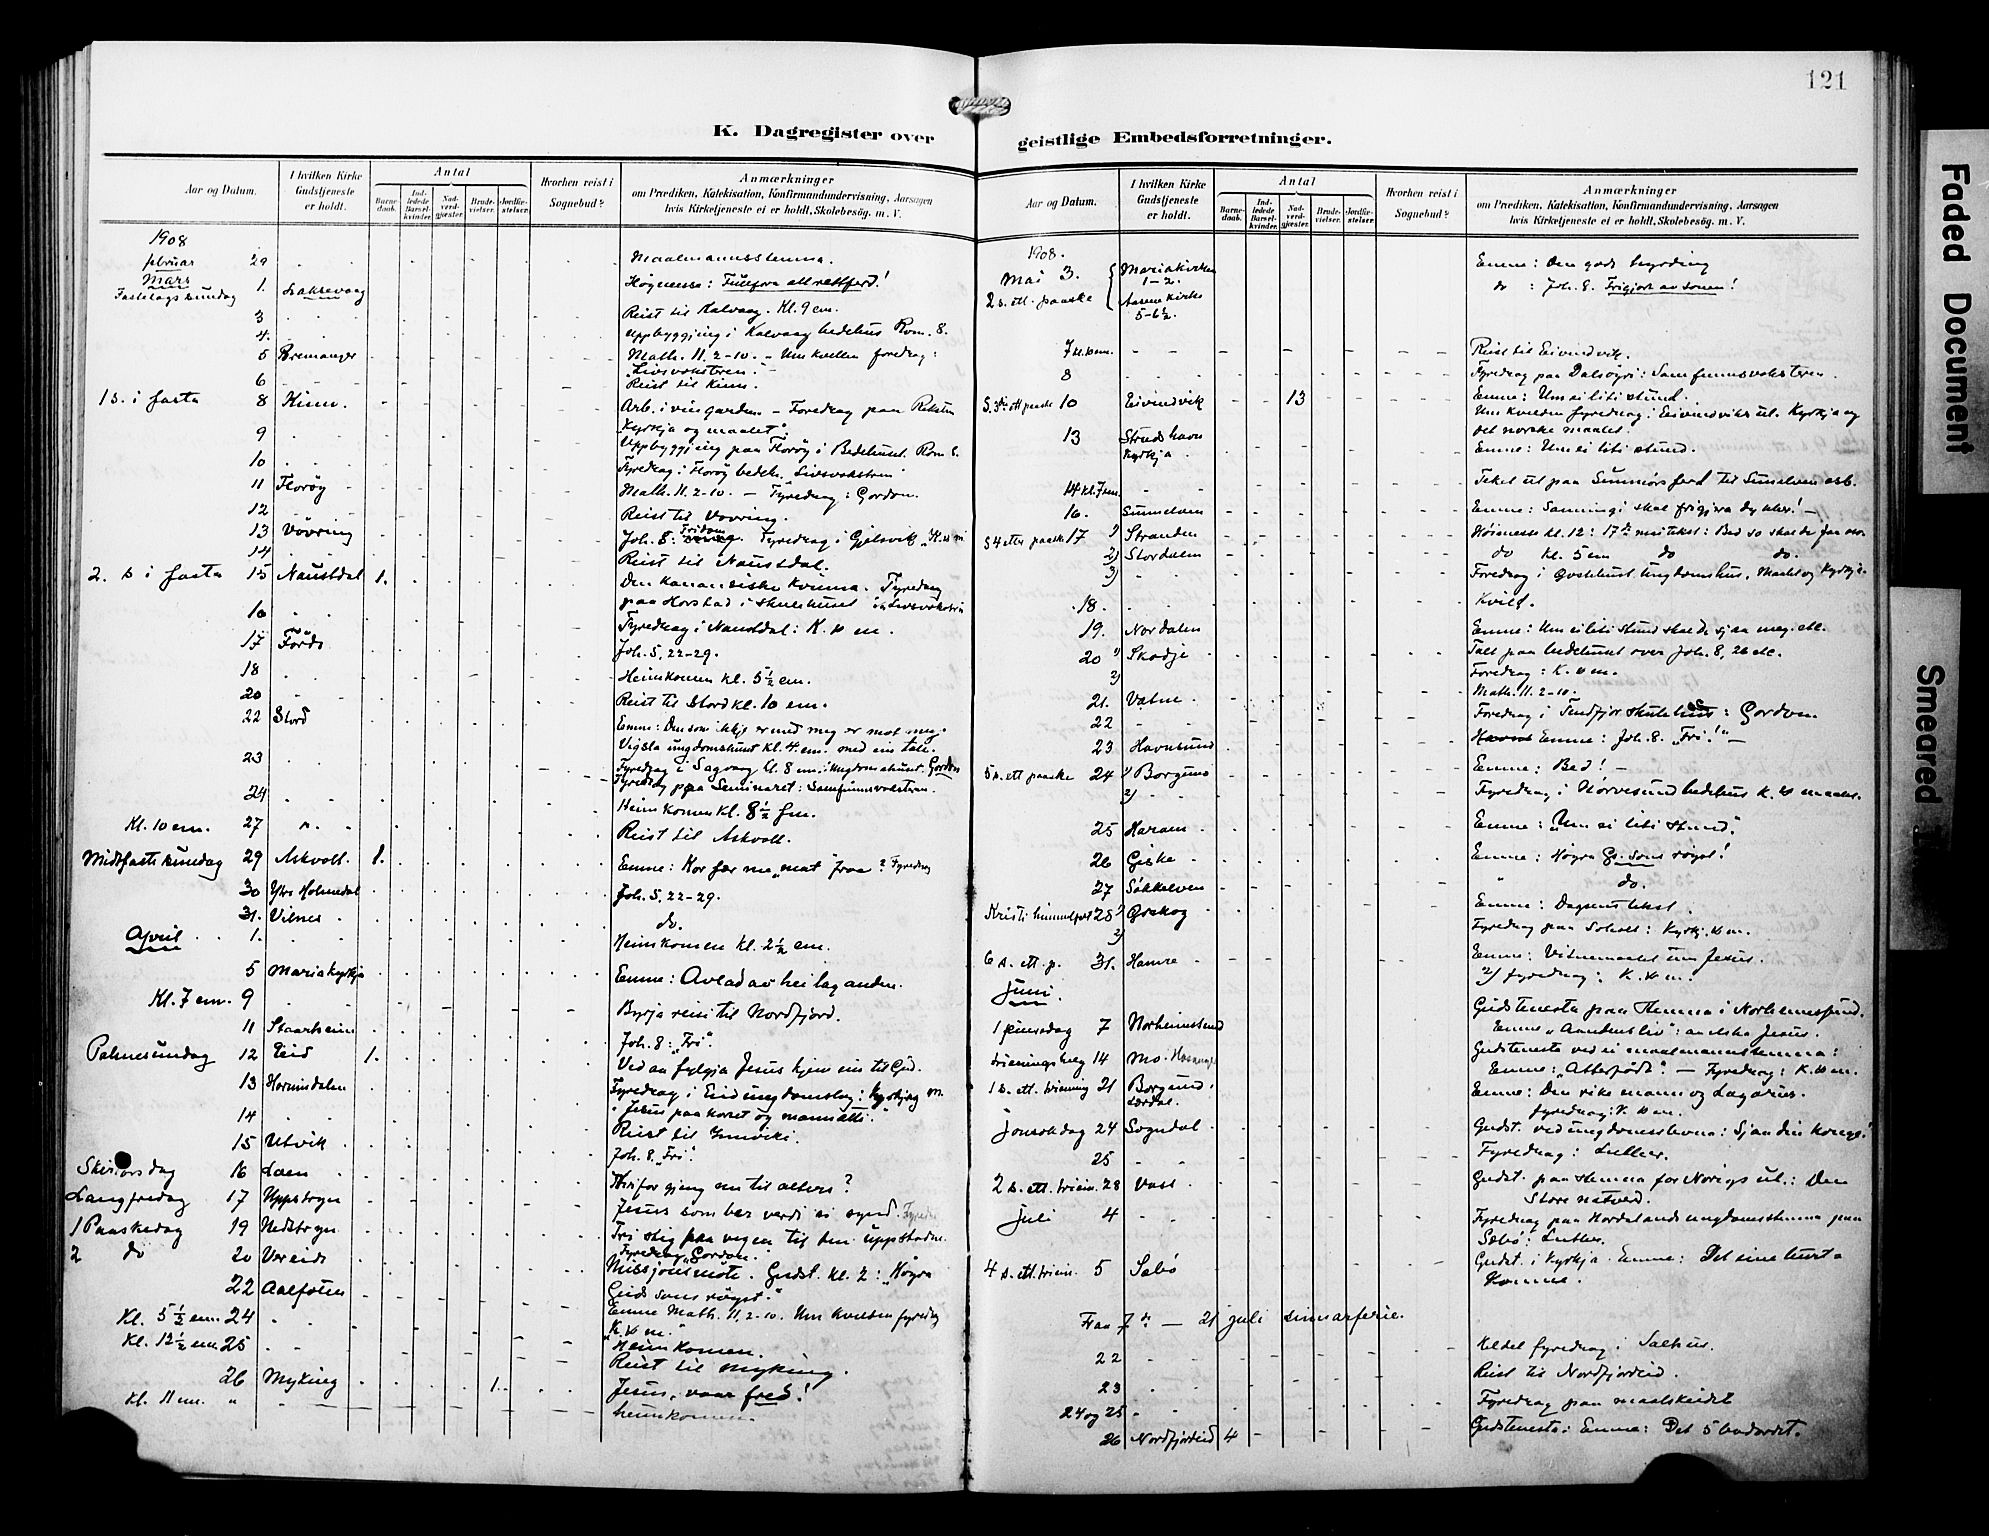 121
K. Dagregister over
geistlige Embedsforretninger.
Aar og Datum.
I hvilken Kirke Gudstjeneste er holdt.
Antal
Barne-daab.
Ind-ledede Barsel-kvinder.
Nad-verd-gjester.
Brude-vielser.
Jordfæ-stelser.
Hvorhen reist i Sognebud?
Anmærkninger
om Prædiken, Katekisation, Konfirmandundervisning, Aarsagen
hvis Kirketjeneste ei er holdt, Skolebesög. m. V.
1908
februar 29 Maalmannsstemna.
Mars
Fastelagssundag 1. Laksevaag Høgmessa: Fullfora all rettferd!
3 Reist til Kalvaag. Kl. 9 em.
4. Uppbyggjing i Kalvaag bedehus Rom. 8.
5 Bremanger Math. 11. 2-10. - Um kvellen foredrag:
"Livsvoksteren".
6 Reist til Kinn.
1 s. i fasta 8 Kinn. Arb. i vingarden - Foredrag paa Reksten
"Kyrkja og maalet".
9 Uppbyggjing paa Florøy i Bedehuset. Rom 8.
10 Fyredrag i Florøy bedeh. Livsvokstrin
11 Florøy Math. 11. 2-10. - Fyredrag: Gordon.
12 Reist til Vovring.
13 Vövring Joh. 8: Fridom. Fyredrag i Gjelsvik "K. og m
14 Reist til Naustdal.
2. s i fasta 15 Naustdal 1. Den kananeiske kvinna. Fyredrag
paa Horstad i skulehuset Livsvokstrin
16 Fyredrag i Naustdal: K. og m.
17 Förde Joh. 5, 22-29.
18 Heimkomen kl. 5½ em.
20 Reist til Stord kl. 10 em.
22 Stord Emne: Den som ikkje er med meg er mot meg.
Vigsla ungdomshuset kl. 4 em. med ein tale.
23 Fyredrag i Sagvaag kl. 8 em. i Ungdomshuset. Gordon
Fyredrag paa Seminaret: Samfunnsvoksteren.
24 Heimkomen kl. 8½ fm.
Kl. 10 em. 27 Reist til Askvoll.
Midtfastesundag 29 Askvoll. 1. Emne: Kor fær me "mat" fraa? Fyredrag
30 Ytre Holmedal Joh. 5, 22-29.
31. Vilnes do.
April 1. Heimkomen kl. 2½ em.
5 Mariakyrkja Emne: Avlad av heilag anden.
Kl. 7 em. 9 Byrja reisi til Nordfjord.
11 Staarheim Joh. 8: "Fri".
Palmesundag 12 Eid 1. Ved aa fylgja Jesus kjem ein til Gud.
13 Hornindalen Fyredrag i Eid ungdomslag: Kyrkja og m.
"Jesus paa korset og mannætti."
14 Reist til Innviki.
15 Utvik Joh. 8. "Fri".
Skirtorsdag 16 Loen Korfor gjeng em til alters?
Langfredag 17 Uppstryn Jesus som ber verdi si synd. Fyredr
1 Paaskedag 19 Nedstryn Fri stig paa vegen til den uppstadne.
Fyredrag "Gordon".
2 do 20 Vereide Missjonsmöte. Gudst. kl. 2: "Høyra
22 Aalfoten Guds sons röyst."
Kl. 5½ em. 24 Emne Math. 11, 2-10. Um kvelden fyredrag
"K. og m."
Kl. 12½ em 25 Heimkomen.
Reist til Myking.
26 Myking 1. Jesus, vaar fred!
Kl. 11 em. " heimkomen.
Aar og Datum.
I hvilken Kirke Gudstjeneste er holdt.
Antal
Barne-daab.
Ind-ledede Barsel-kvinder.
Nad-verd-gjester.
Brude-vielser.
Jordfæ-stelser.
Hvorhen reist i Sognebud?
Anmærkninger
om Prædiken, Katekisation, Konfirmandundervisning, Aarsagen
hvis Kirketjeneste ei er holdt, Skolebesög. m. V.
1908.
Mai 3. Mariakirken 1-2. Emne: Den gode hyrding
2 s. ett. paaske Aarene kirke 5-6½. do : Joh. 8. Frigjort av sonen!
7 kl. 10 em. Reist til Eivindvik.
8 Fyredrag paa Dalsøyri: Samfunnsvoksteren.
S. 3die ett paaske 10 Eivindvik 13 Emne: Um ei liti stund.
Um kvelden fyredrag i Eivindvik ul. Kyrkja og
det norske maalet.
13 Skudshavn Kyrkja Emne: Um ei liti stund.
14 Kl. 7 em. Teket ut paa Sunnmørsferd til Sunnelven osb.
16. Sunnelven Emne: Sanningi skal frigjera dykker! -
S 4 etter paaske 17 1) Stranden Høimesse kl. 12: 17de mai tekst: Bed so skal de faa osv.
2) Stordalen do kl. 5 em do do.
3) Foredrag i ungdomshus. Maalet og Kyrkja.
18. Kvild.
19. Nordalen Emne: Um ei liti stund skal de sjaa meg. etc.
20 1) Skodje Tale paa bedehuset over Joh. 8, 26 etc.
2) Foredrag: K. og m.
21. Vatne Math. 11. 2-10.
22 Foredrag i Tenfjor skulehus: Gordon.
23 Havnsund Emne: Joh. 8. "Fri!" -
5 s. ett paaske 24 1) Borgund Emne: Bed! -
2) Fyredrag i Nörvesund bedehus K. og maalet.
25 Haram Emne: "Um ei liti stund".
26 Giske Emne: Høyra Gs. Sons røyst!
27 Søkkelven " do.
Kristi himmelfart 28 1) Ørskog Emne: Dagsens tekst.
2) Fyredrag paa Soholt: Kyrkj. og m.
6 s. ett. p. 31. Hamre Emne: Vitnemaalet um Jesus.
2) fyredrag: K. og m.
Juni
1 pinsedag 7 Norheimsund Gudstenesta paa stemna i Norheimssund.
Emne "Aandens liv": aa elska Jesus.
trieiningshelg 14 Mo. Gudsteneste ved ei maalmannstemna:
Emne: "Atterfödt" - Fyredrag: K. og m.
1 s. ett. trieining 21 Borgund. Lærdal. Emne: Den rike mann og Lazarus.
fyredrag: K. og m.
Jonsokdag 24 Sogndal Gudst. ved ungdomsstevna: Sjaa din konge!
25 Fyredrag: Luther.
2 s. ett. triein. 28 Voss. Gudst. paa stemna for Norigs ul.: Den
Store natverd.
Juli 4 Fyredrag paa Hordalands ungdomsstemna paa
Sæbö: Luther.
4 s. ett. triein. 5 Sæbö Gudst. i Kyrkja. Emne: Det eine turvta
Komme.
Fraa 7de - 21 juli sumarferie.
22 Heldt fyredrag i Salhus.
23 Reist til Nordfjordeid.
24 og 25 Fyredrag paa maalskeidet
26 Nordfjordeid 4 Gudstenesta: Emne: Det 5 bodordet.
Faded Document
Smeared